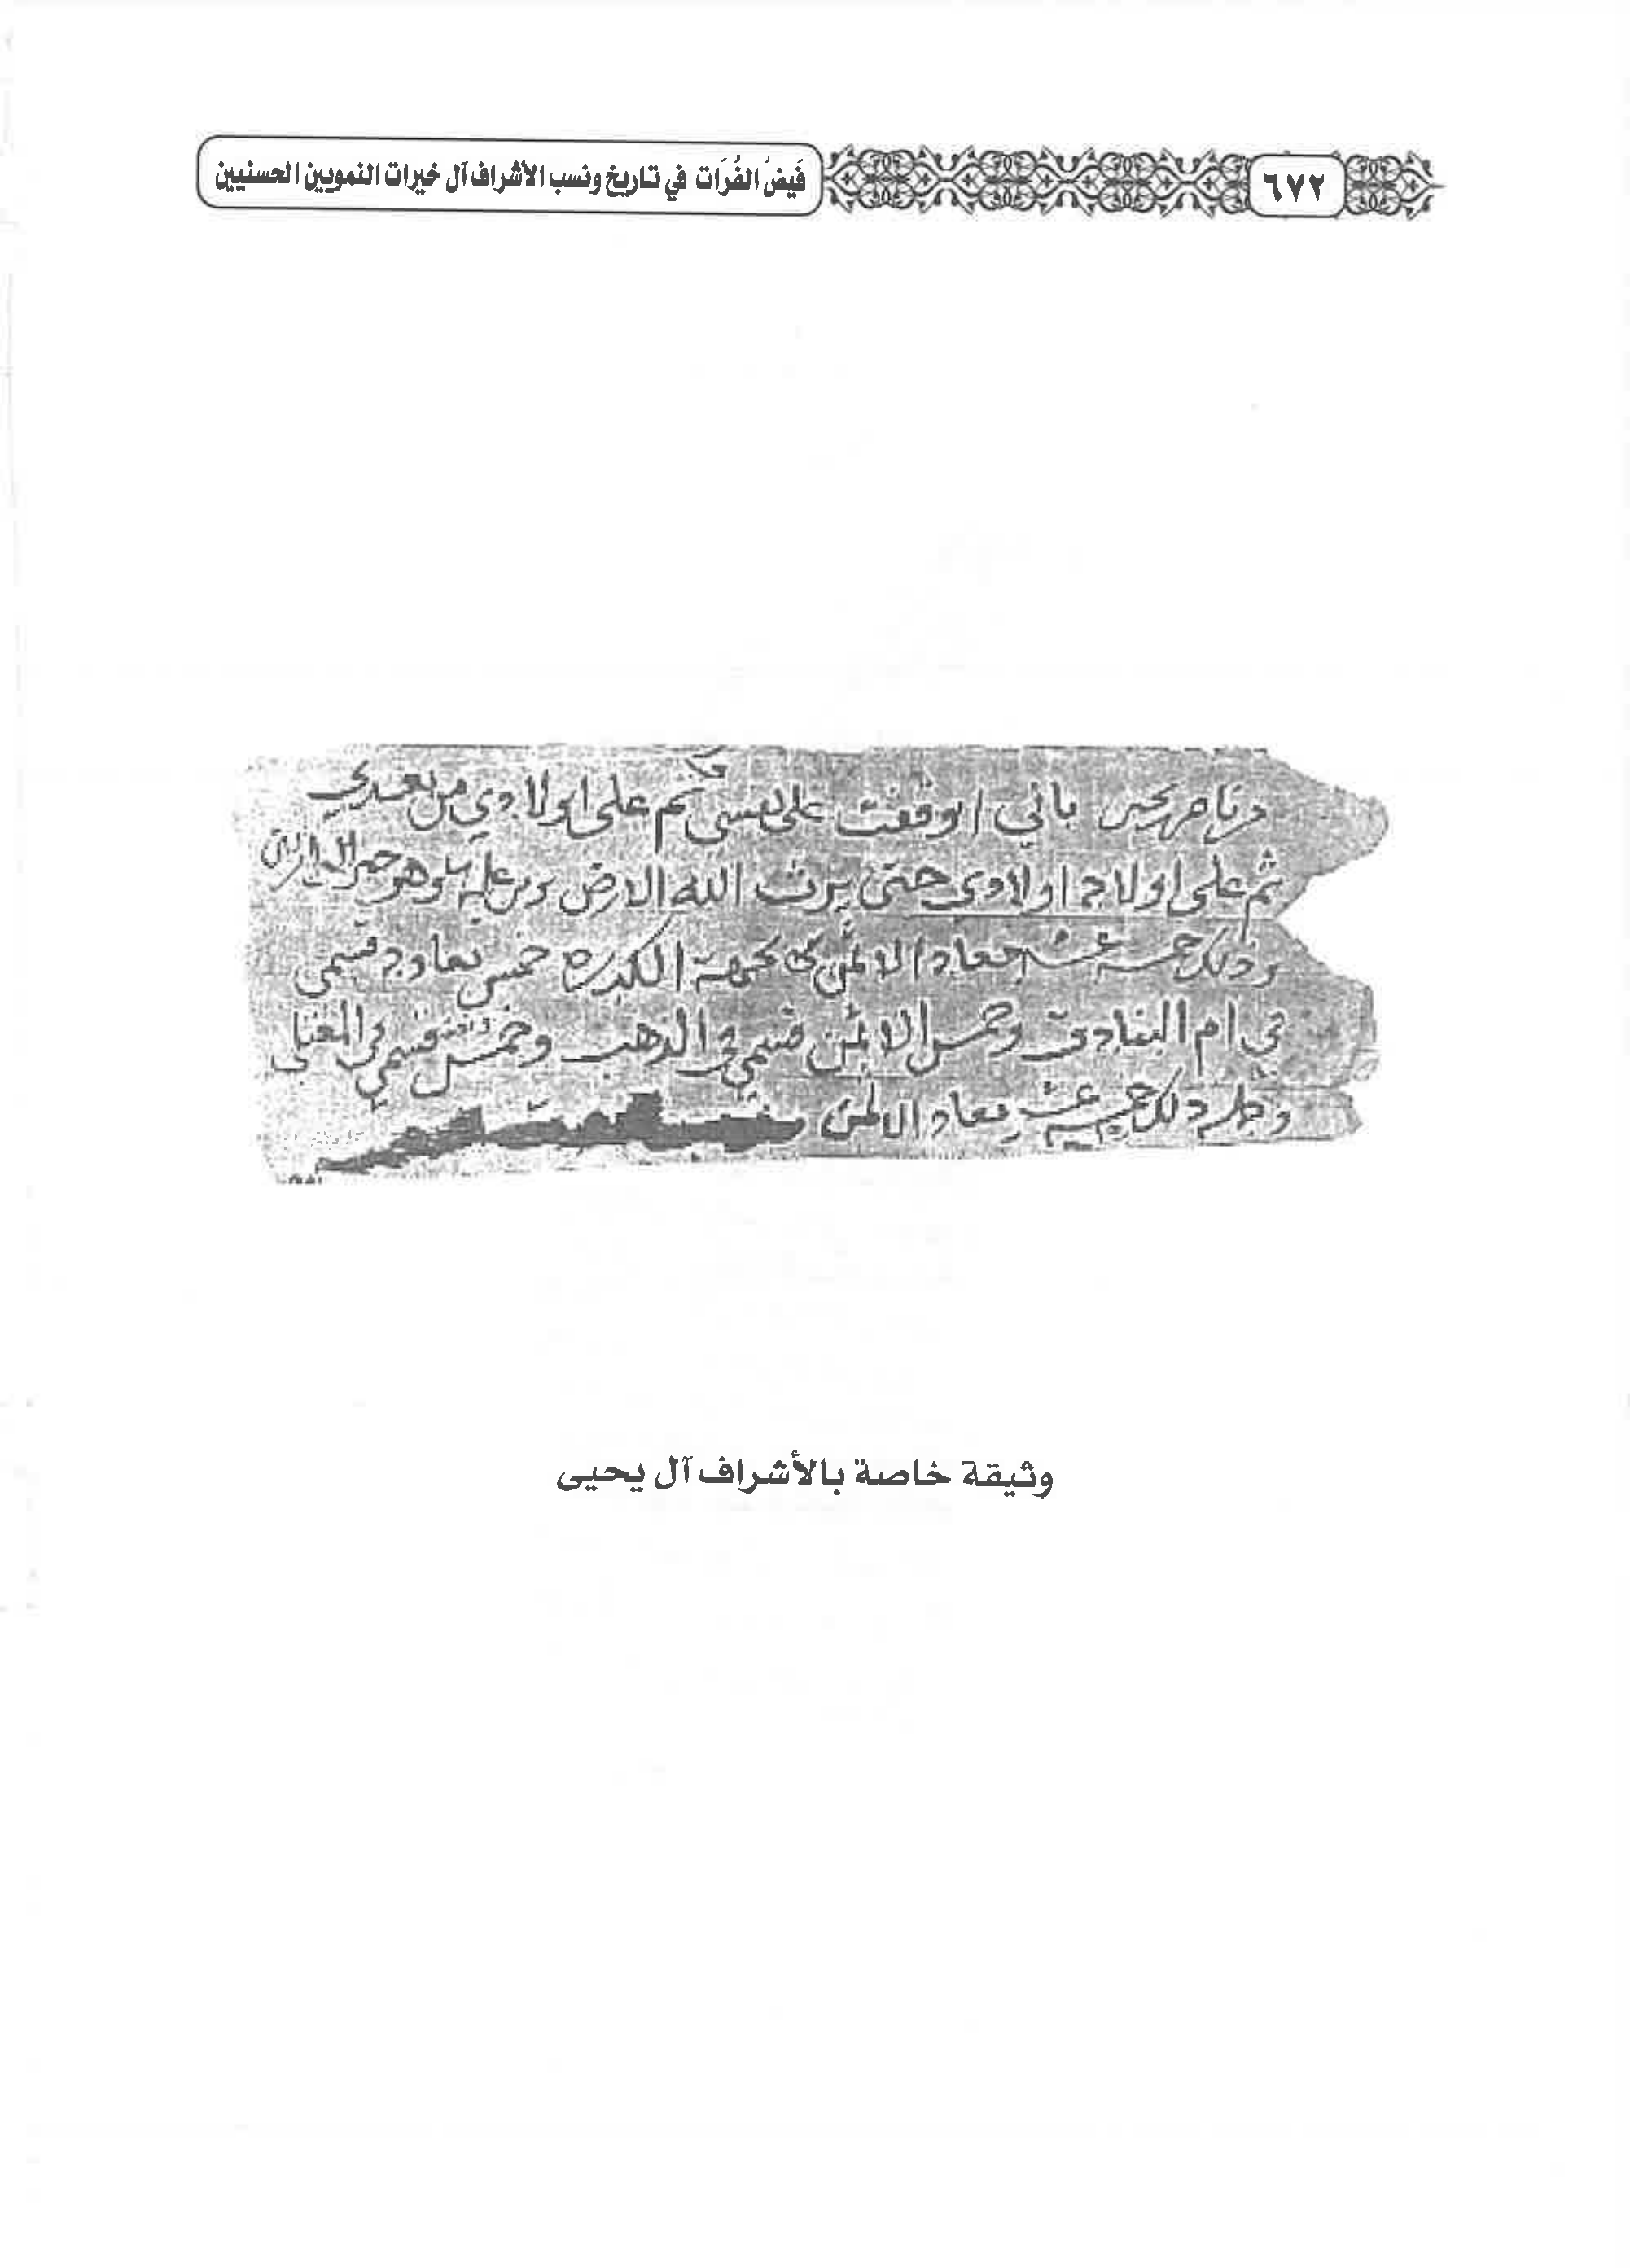 ٦٧٢
فَيضُ الفُرَات في تاريخ ونسب الأشراف آل خيرات النمويين الحسنيين
باني اوقفت على نفسي ثم على اولادي من بعدي
ثم على اولاد اولادي حتى يرث الله الارض ومن عليها وهو خير الوارثين
وذلك خمسة عشر معاد الا ثمن جهة الكدره خمس معاود قسمي
في ام البنادق وخمس الا ثمن قسمي في الذهب وخمس قسمي في
ذلك خمسة عشر معاد الا ثمن
وثيقة خاصة بالأشراف آل يحيى